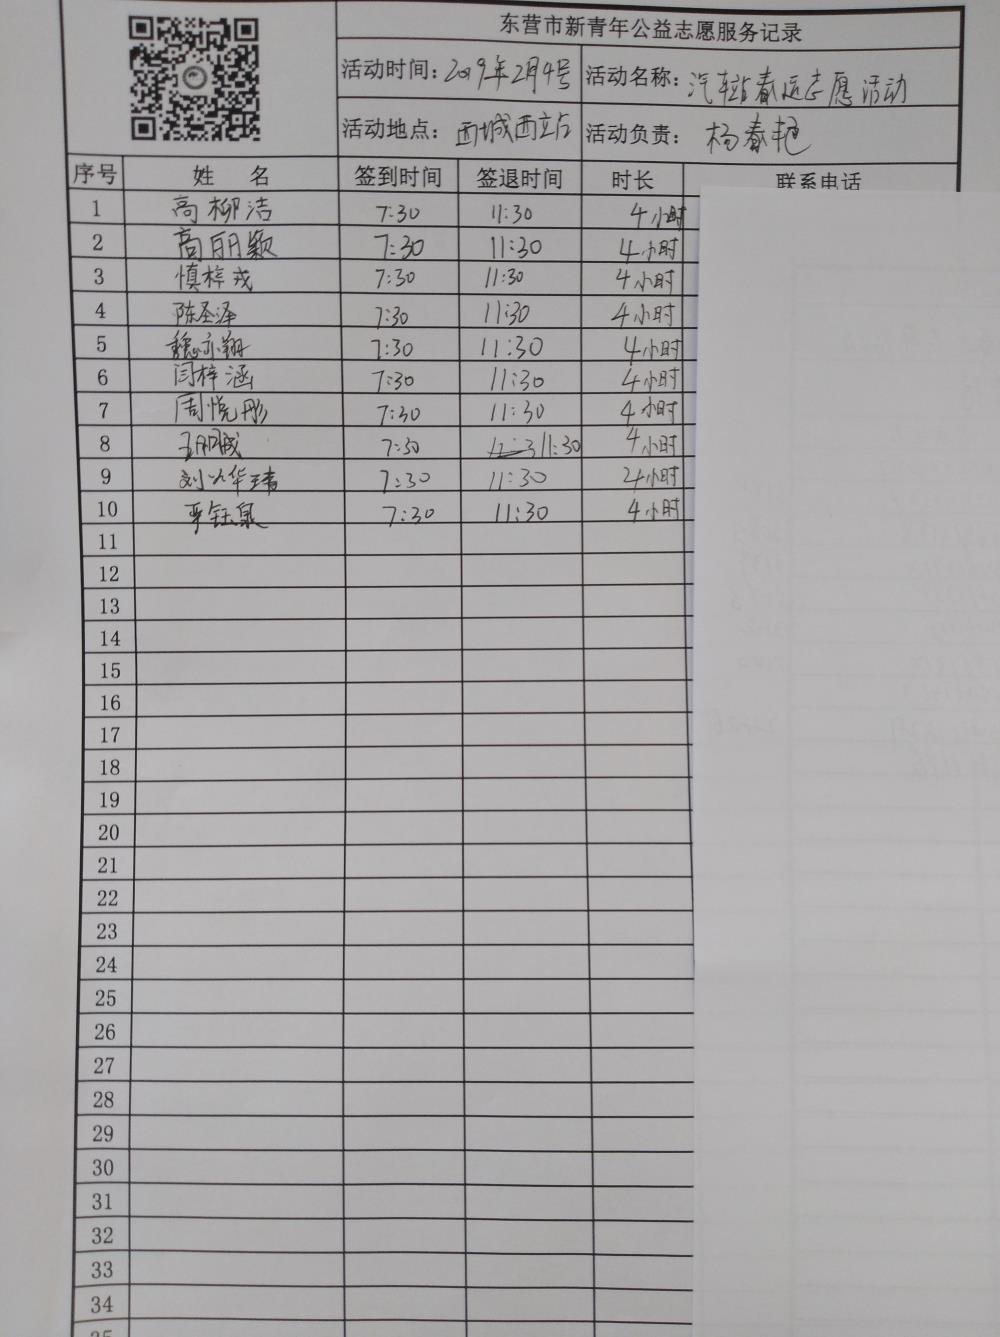 东营市新青年公益志愿服务记录
活动时间：2019年2月4号 活动名称：汽车站春运志愿活动
活动地点：西城西站 活动负责：杨春艳
序号 姓 名 签到时间 签退时间 时长 联系电话
1 高柳洁 7:30 11:30 4小时
2 高丽颖 7:30 11:30 4小时
3 慎梓戎 7:30 11:30 4小时
4 陈圣泽 7:30 11:30 4小时
5 魏亦翔 7:30 11:30 4小时
6 闫梓涵 7:30 11:30 4小时
7 周悦彤 7:30 11:30 4小时
8 7:30 11:30 4小时
9 刘以华 7:30 11:30 4小时
10 7:30 11:30 4小时
11
12
13
14
15
16
17
18
19
20
21
22
23
24
25
26
27
28
29
30
31
32
33
34
35